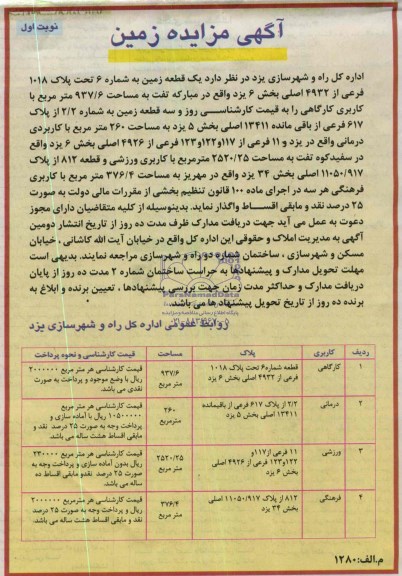 نوبت اول
آگهی مزایده زمین
اداره کل راه و شهرسازی یزد در نظر دارد یک قطعه زمین به شماره ۶ تحت پلاک ۱۰۱۸
فرعی از ۴۹۳۲ اصلی بخش ۶ یزد واقع در مبارکه تفت به مساحت ۹۳۷/۶ متر مربع با
کاربری کارگاهی را به قیمت کارشناسی روز و سه قطعه زمین به شماره ۲/۲ از پلاک
۶۱۷ فرعی از باقی مانده ۱۳۴۱۱ اصلی بخش ۵ یزد به مساحت ۲۶۰ متر مربع با کاربردی
درمانی واقع در یزد و ۱۱ فرعی از ۱۱۷و۱۲۲و۱۲۳ فرعی از ۴۹۲۶ اصلی بخش ۶ یزد واقع
در سفیدکوه تفت به مساحت ۲۵۲۰/۲۵ مترمربع با کاربری ورزشی و قطعه ۸۱۲ از پلاک
۱۱۰۵۰/۹۱۷ اصلی بخش ۳۴ یزد واقع در مهریز به مساحت ۳۷۶/۴ متر مربع با کاربری
فرهنگی هر سه در اجرای ماده ۱۰۰ قانون تنظیم بخشی از مقررات مالی دولت به صورت
۲۵ درصد نقد و مابقی اقساط واگذار نماید. بدینوسیله از کلیه متقاضیان دارای مجوز
دعوت به عمل می آید جهت دریافت مدارک ظرف مدت ده روز از تاریخ انتشار دومین
آگهی به مدیریت املاک و حقوقی این اداره کل واقع در خیابان آیت الله کاشانی ، خیابان
مسکن و شهرسازی ، ساختمان شماره دو راه و شهرسازی مراجعه نمایند. بدیهی است
مهلت تحویل مدارک و پیشنهادها به حراست ساختمان شماره ۲ مدت ده روز از پایان
دریافت مدارک و حداکثر مدت زمان جهت بررسی پیشنهادها ، تعیین برنده و ابلاغ به
برنده ده روز از تاریخ تحویل پیشنهاد ها می باشد.
ParsNamadData
روابط عمومی اداره کل راه و شهرسازی یزد
ردیف کاربری پلاک مساحت قیمت کارشناسی و نحوه پرداخت
۱ کارگاهی قطعه شماره۶ تحت پلاک ۱۰۱۸ ۹۳۷/۶ قیمت کارشناسی هر متر مربع ۲۰۰۰۰۰۰
فرعی از ۴۹۳۲ اصلی بخش ۶ یزد متر مربع ریال با وضع موجود و پرداخت به صورت
نقدی می باشد.
۲ درمانی ۲/۲ از پلاک ۶۱۷ فرعی از باقیمانده ۲۶۰ قیمت کارشناسی هر متر مربع
۱۳۴۱۱ اصلی بخش ۵ یزد مترمربع ۱۰۵۰۰۰۰۰ ریال با آماده سازی و
پرداخت وجه به صورت ۲۵ درصد نقد و
مابقی اقساط هشت ساله می باشد.
۳ ورزشی ۱۱ فرعی از۱۱۷و ۲۵۲۰/۲۵ قیمت کارشناسی هر متر مربع ۲۳۰۰۰۰
۱۲۲و۱۲۳ فرعی از ۴۹۲۶ اصلی متر مربع ریال بدون آماده سازی و پرداخت وجه به
بخش ۶ یزد صورت ۲۵ درصد نقدو مابقی اقساط ده
ساله می باشد.
۴ فرهنگی ۸۱۲ از پلاک ۱۱۰۵۰/۹۱۷ اصلی ۳۷۶/۴ قیمت کارشناسی هر مترمربع ۲۰۰۰۰۰۰
بخش ۳۴ یزد متر مربع ریال و پرداخت وجه به صورت ۲۵ درصد
نقد و مابقی اقساط هشت ساله می باشد.
م.الف:۱۲۸۰